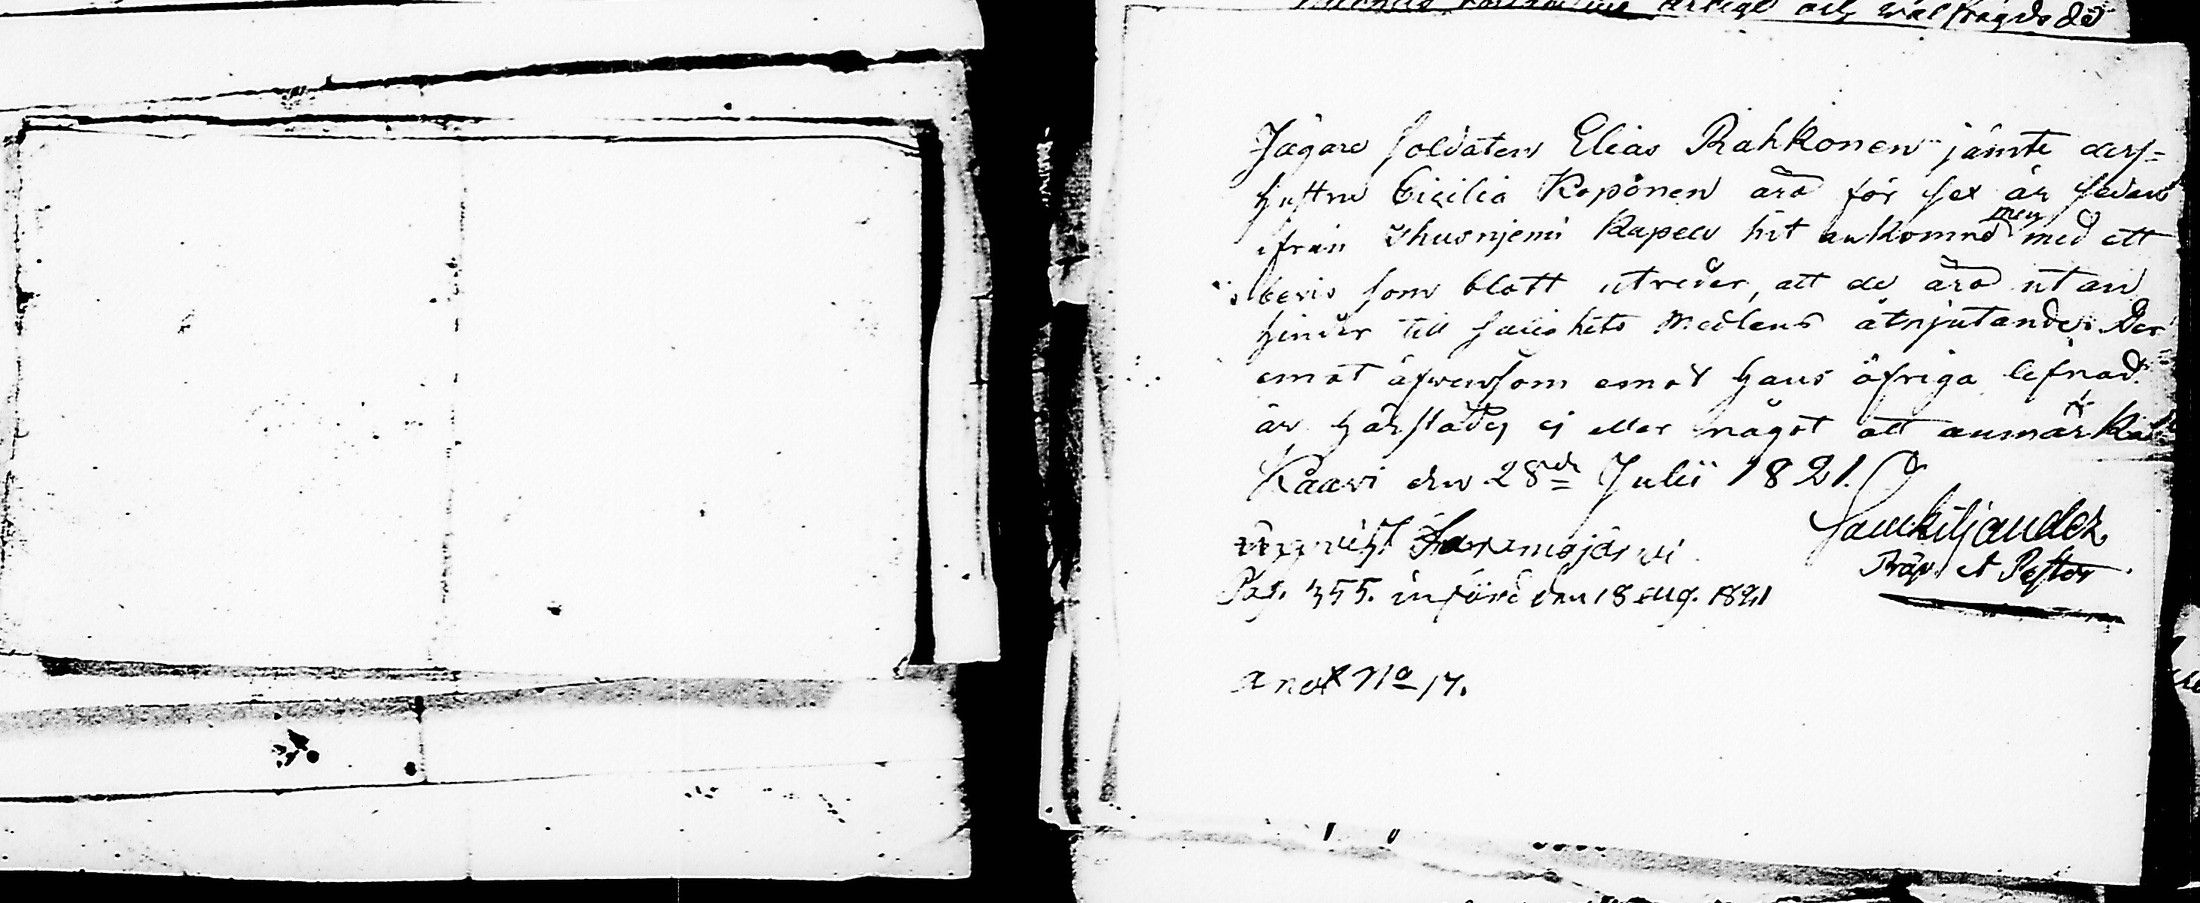 Jägare Soldaten Elias Rahkonen jämte dess
hustru Cicilia Koponen äro för sex år sedan
ifrån Ihusnjemi Kapell hit ankomne men med ett
bevis som blott utreder, att de äro utan
hinder till salighets medlens åtnjutande. Der
emot äfvensom emot hans öfriga lefnad
är härstädes ej eller något att anmärka
Kaavi den 28de Julii 1821.
Sam Kiljander
Präp. et Pastor
Pag. 355. införd den 18 Aug. 1821
anot No 17.